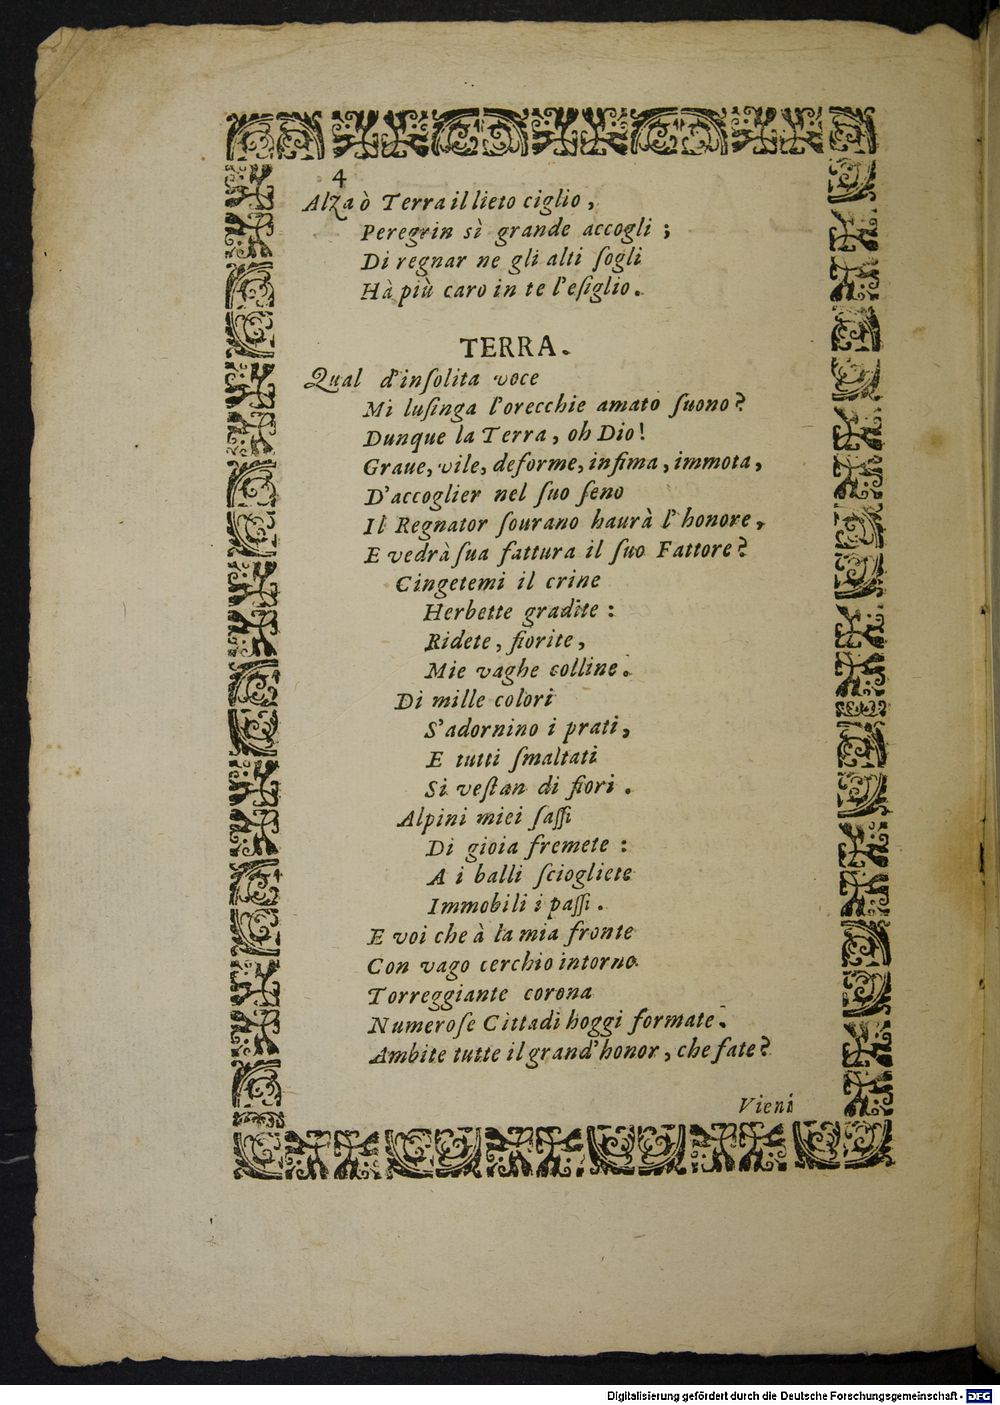 4
Alza ò Terra il lieto ciglio,
Peregrin sì grande accogli;
Di regnar ne gli alti ſogli
Hà più caro in te l'eſiglio.
TERRA.
Qual d'inſolita voce
Mi luſinga l'orecchie amato ſuono?
Dunque la Terra, oh Dio!
Graue, vile, deforme, infima, immota,
D'accoglier nel ſuo ſeno
Il Regnator ſourano haurà l'honore,
E vedrà ſua fattura il ſuo Fattore?
Cingetemi il crine
Herbette gradite:
Ridete, fiorite,
Mie vaghe colline.
Di mille colori
S'adornino i prati,
E tutti ſmaltati
Si veſtan di fiori.
Alpini miei ſaſſi
Di gioia fremete:
A i balli ſciogliete
Immobili i paſſi.
E voi che à la mia fronte
Con vago cerchio intorno
Torreggiante corona
Numeroſe Cittadi hoggi formate.
Ambite tutte il grand'honor, che fate?
Vieni
Digitalisierung gefördert durch die Deutsche Forschungsgemeinschaft - DFG